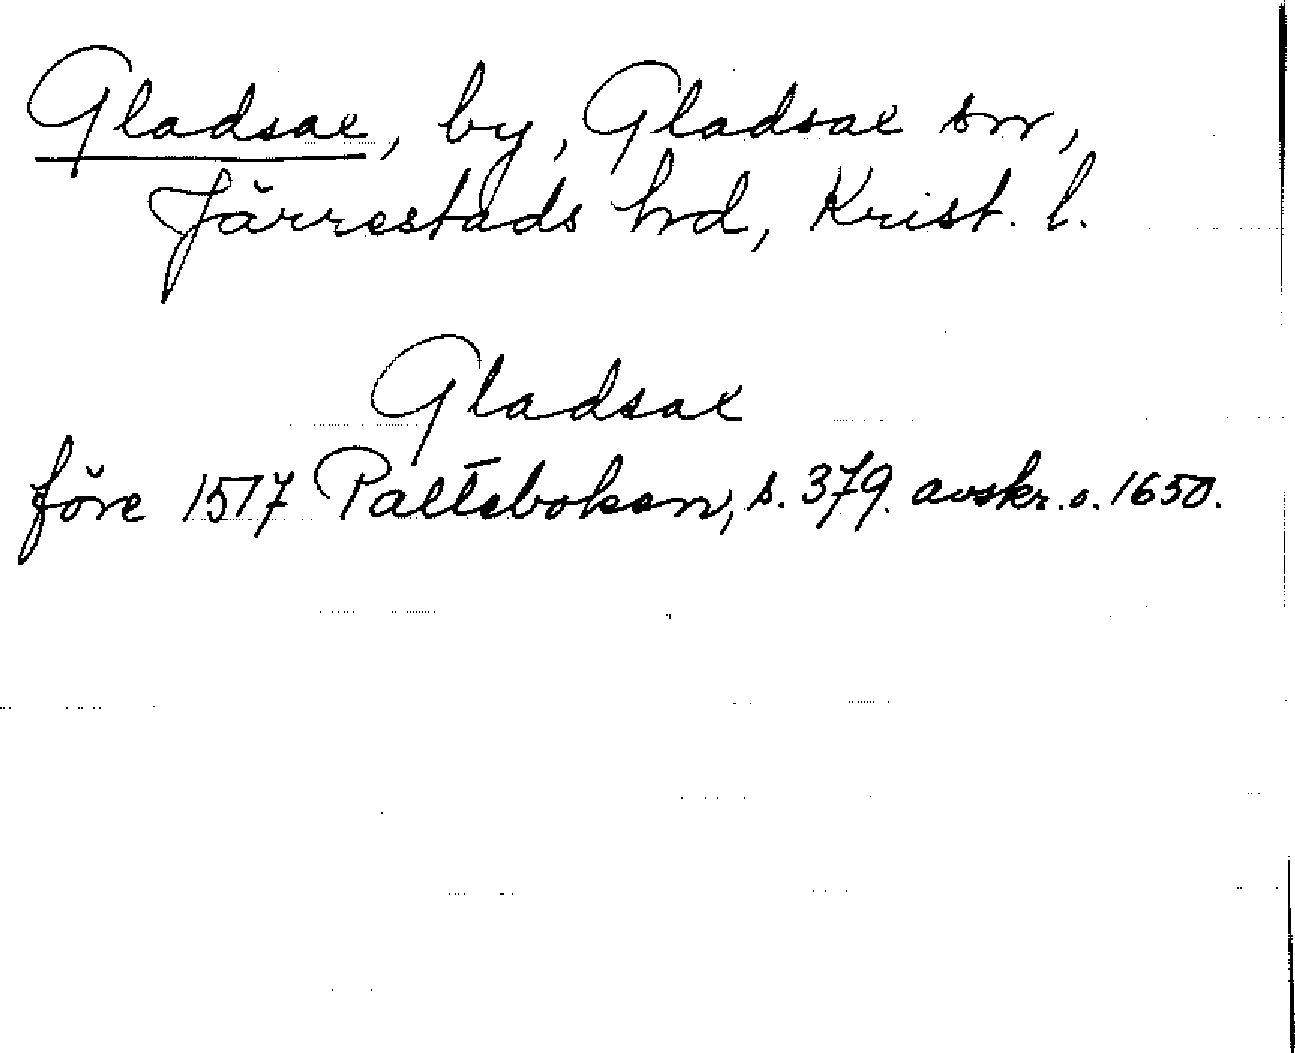 Gladsax, by, Gladsax sn,
Järrestads hd, Krist. l.
Gladsax
före 1517 Palteboken, s. 379. avskr. o. 1650.